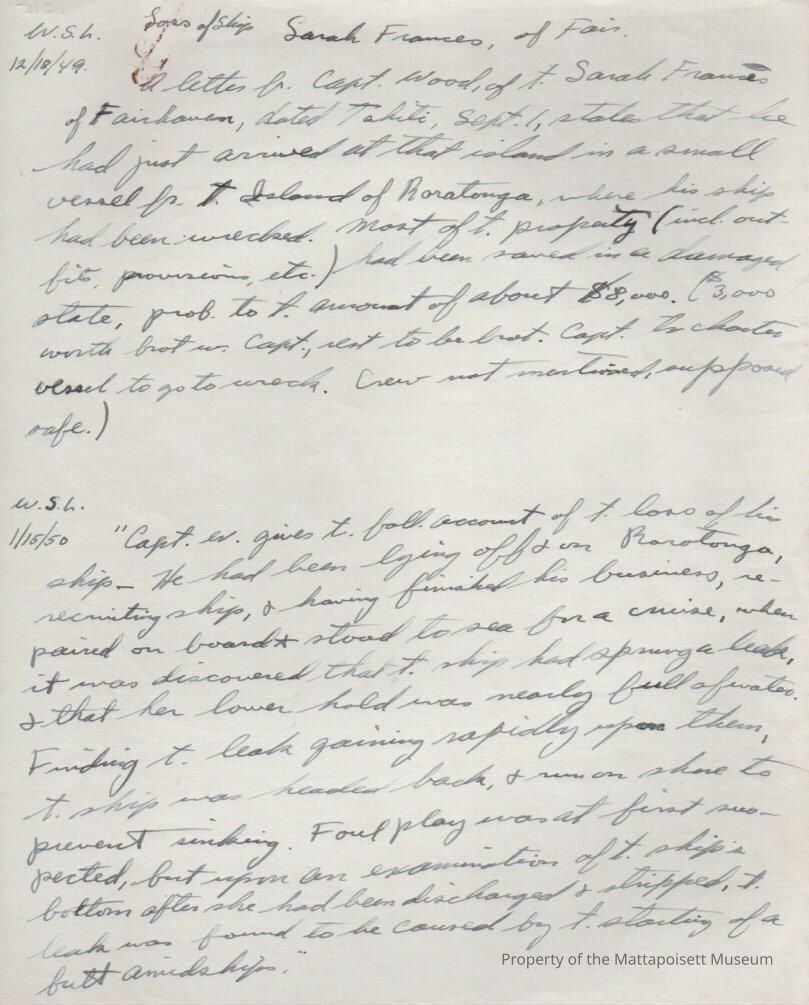 W.S.L. Loss of Ship Sarah Frances, of Fair.
12/18/49.
A letter fr. Capt. Wood, of t. Sarah Frances
of Fairhaven, dated Tahiti, Sept. 1, states that he
had just arrived at that island in a small
vessel fr. t. Island of Roratonga, where his ship
had been wrecked. Most of t. property (incl. out-
fits, provisions, etc.) had been saved in a damaged
state, prob. to t. amount of about $8,000. ($3,000
worth brot w. Capt., rest to be brot. Capt. to charter
vessel to go to wreck. Crew not mentioned, supposed
safe.)
W.S.L.
1/15/50 "Capt. W. gives t. foll. account of t. loss of his
ship— He had been lying off & on Rarotonga,
recruiting ship, & having finished his business, re-
paired on board & stood to sea for a cruise, when
it was discovered that t. ship had sprung a leak,
& that her lower hold was nearly full of water.
Finding t. leak gaining rapidly upon them,
t. ship was headed back, & run on shore to
prevent sinking. Foul play was at first sus-
pected, but upon an examination of t. ship's
bottom after she had been discharged & stripped, t.
leak was found to be caused by t. starting of a
butt amidships."
Property of the Mattapoisett Museum